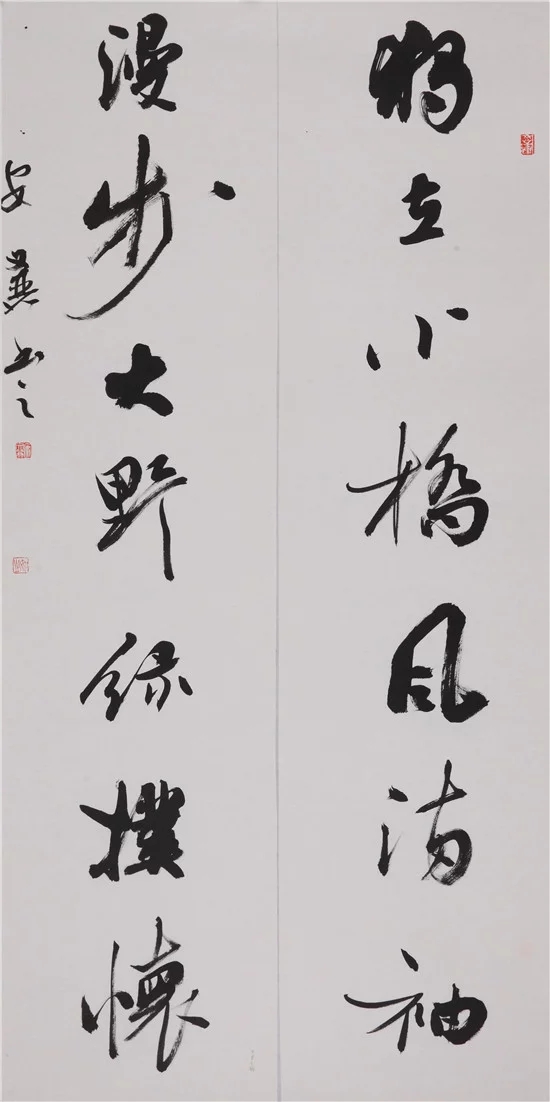 獨立小橋風滿袖
漫步大野綠撲懷
安書之